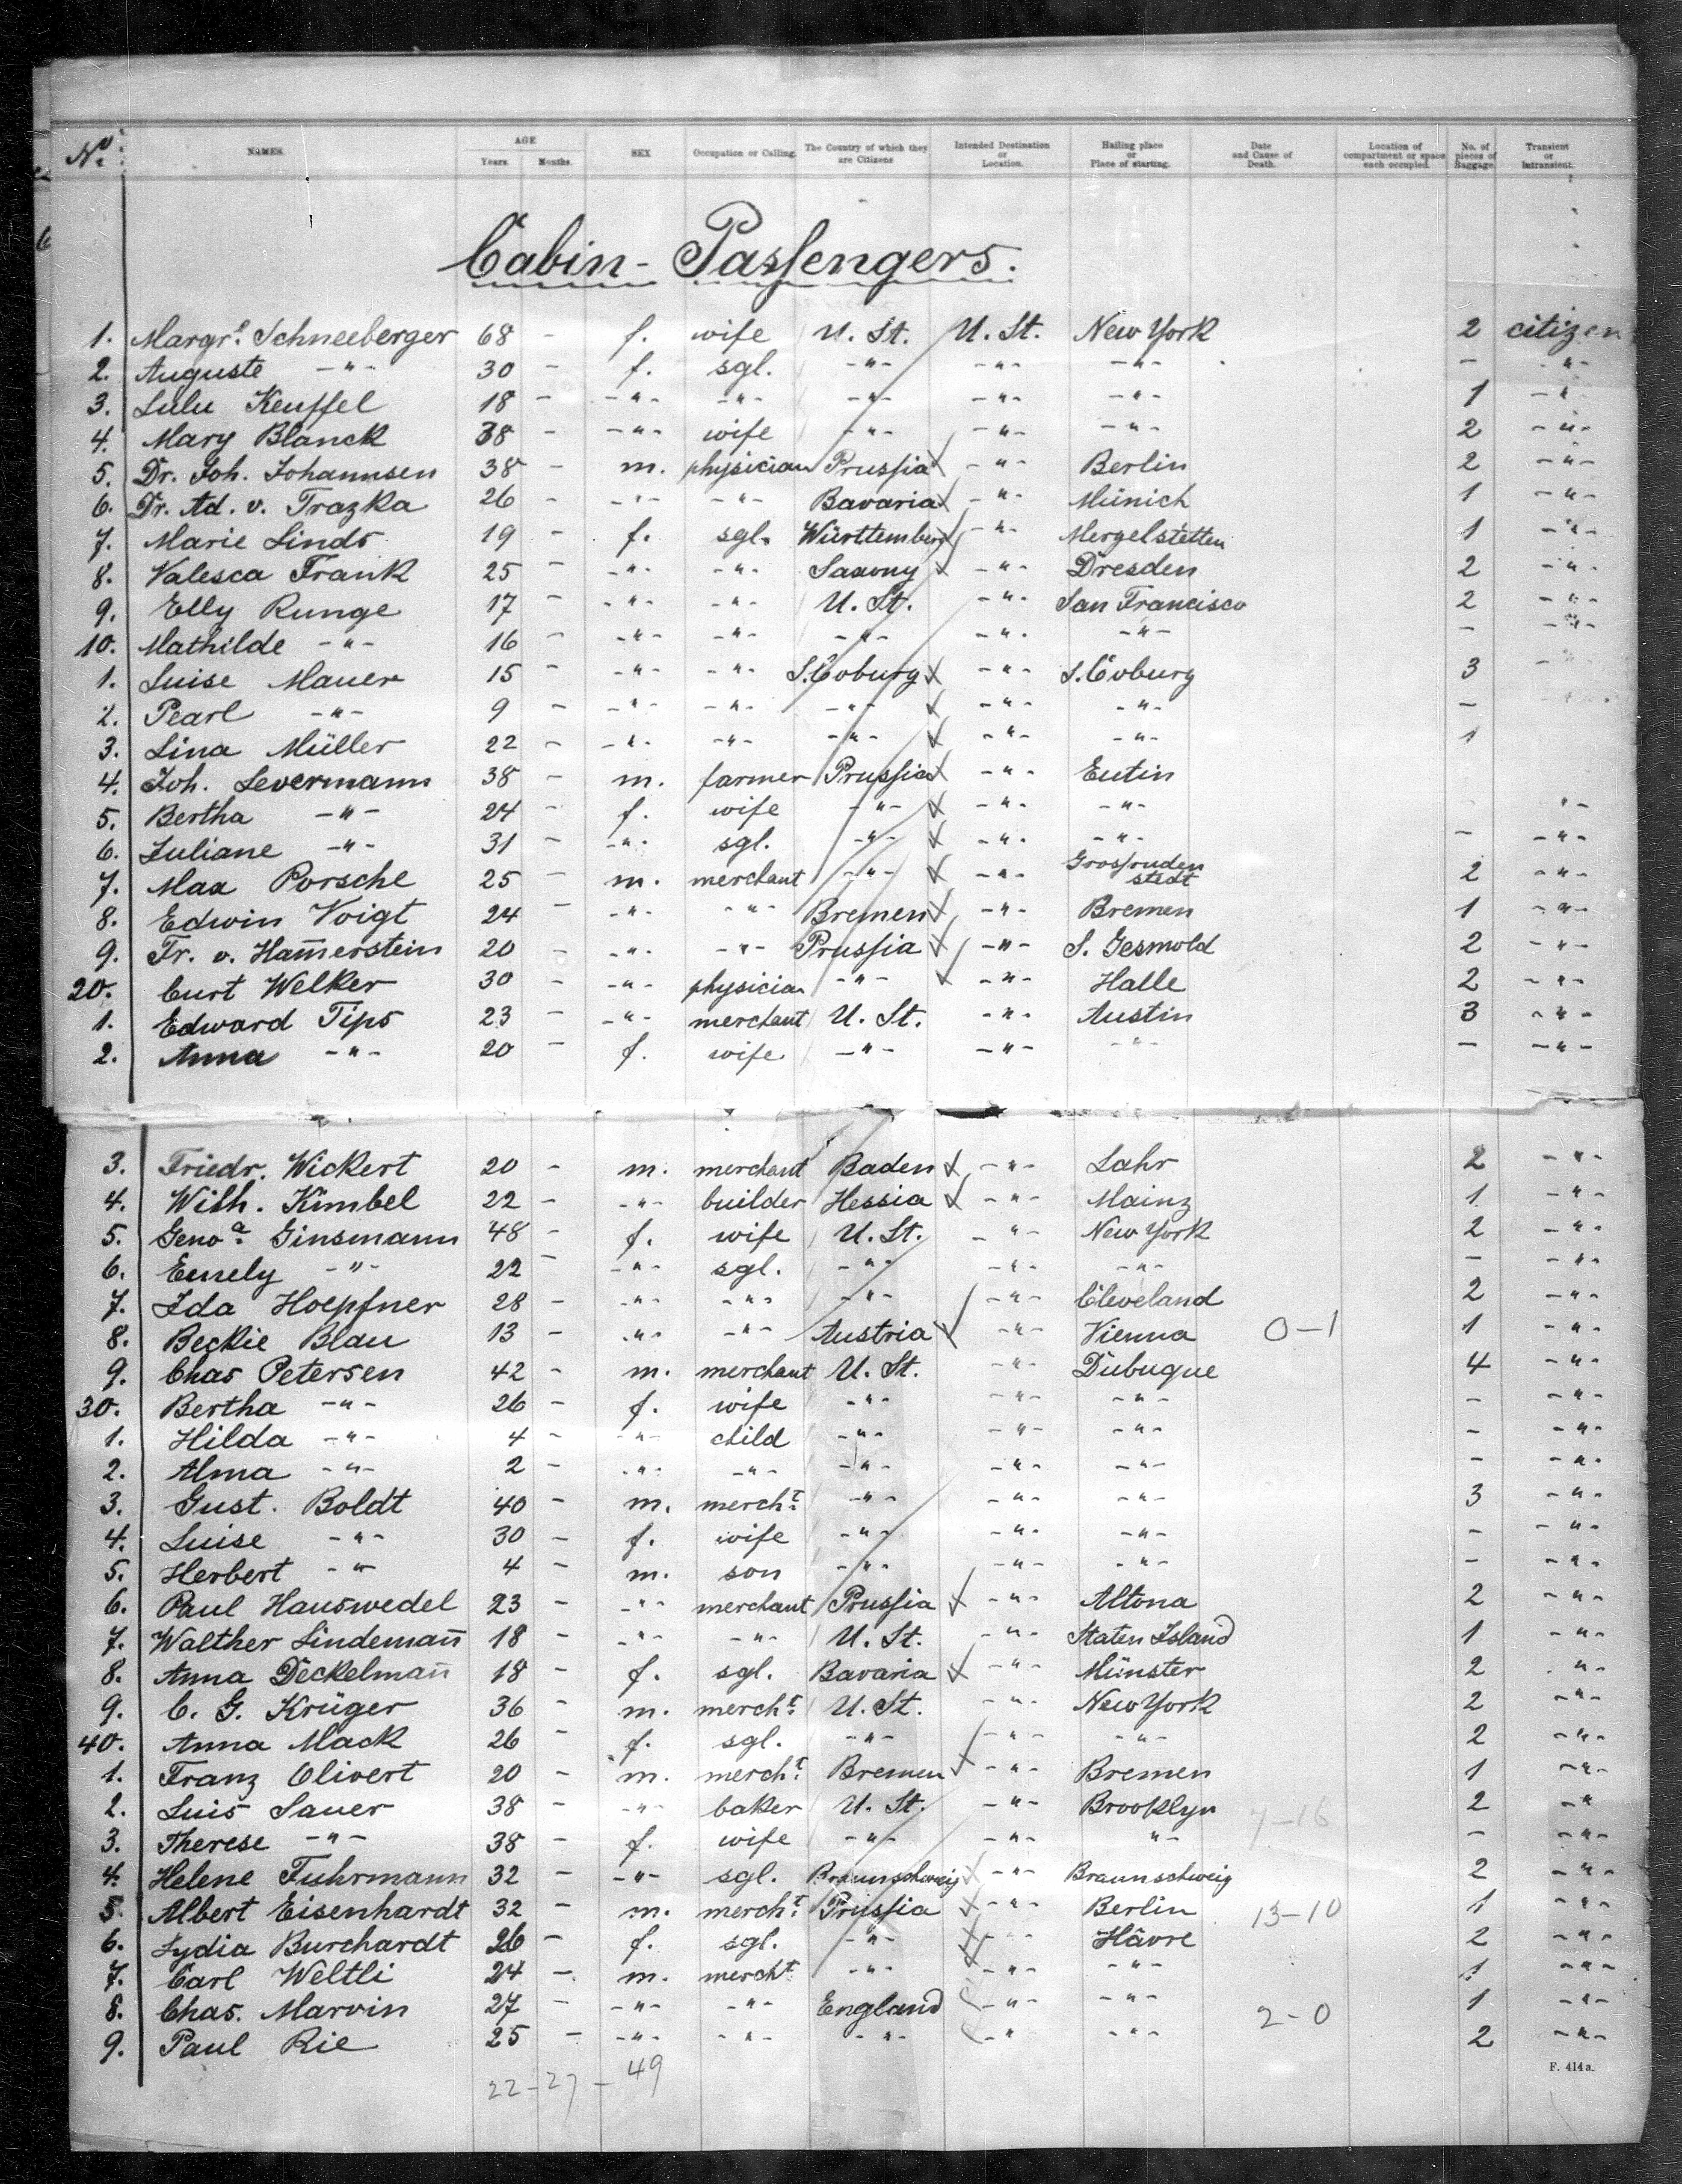 No. NAMES. AGE Years. Months. SEX Occupation or Calling. The Country of which they are Citizens Intended Destination or Location. Hailing place or Place of starting. Date and Cause of Death. Location of compartment or space each occupied. No. of pieces of Baggage. Transient or Intransient.
Cabin-Passengers.
1. Margr. Schneeberger 68 - f. wife U. St. U. St. New York 2 citizen
2. Auguste -"- 30 - f. sgl. -"- -"- -"- - -"-
3. Lulu Keuffel 18 - -"- -"- -"- -"- -"- 1 -"-
4. Mary Blanck 38 - -"- wife -"- -"- -"- 2 -"-
5. Dr. Joh. Johannsen 38 - m. physician Prussia -"- Berlin 2 -"-
6. Dr. Ad. v. Trazka 26 - -"- -"- Bavaria -"- Münich 1 -"-
7. Marie Linds 19 - f. sgl. Württemberg -"- Mergelstetten 1 -"-
8. Valesca Frank 25 - -"- -"- Saxony -"- Dresden 2 -"-
9. Elly Runge 17 - -"- -"- U. St. -"- San Francisco 2 -"-
10. Mathilde -"- 16 - -"- -"- -"- -"- -"- - -"-
1. Luise Mauer 15 - -"- -"- S. Coburg -"- S. Coburg 3 -
2. Pearl -"- 9 - -"- -"- -"- -"- -"- -
3. Lina Müller 22 - -"- -"- -"- -"- -"- 1
4. Joh. Levermann 38 - m. farmer Prussia -"- Eutin
5. Bertha -"- 24 - f. wife -"- -"- -"- "-
6. Juliane -"- 31 - -"- sgl. -"- -"- -"- - -"-
7. Max Porsche 25 - m. merchant -"- -"- Grossruden
stedt 2 -"-
8. Edwin Voigt 24 - -"- -"- Bremen -"- Bremen 1 -"-
9. Fr. v. Ham̅erstein 20 - -"- -"- Prussia -"- S. Gesmold 2 -"-
20. Curt Welker 30 - -"- physician -"- -"- Halle 2 -"-
1. Edward Tips 23 - -"- merchant U. St. -"- Austin 3 -"-
2. Anna -"- 20 - f. wife -"- -"- -"- - -"-
3. Friedr. Wickert 20 - m. merchant Baden -"- Lahr 2 -"-
4. Wilh. Kimbel 22 - -"- builder Hessia -"- Mainz 1 -"-
5. Geno.a Ginsmann 48 - f. wife U. St. -"- New York 2 -"-
6. Emely -"- 22 - -"- sgl. -"- -"- -"- - -"-
7. Ida Hoepfner 28 - -"- -"- -"- -"- Cleveland 2 -"-
8. Beckie Blau 13 - -"- -"- Austria -"- Vienna 0-1 1 -"-
9. Chas Petersen 42 - m. merchant U. St. -"- Dubuque 4 -"-
30. Bertha -"- 26 - f. wife -"- -"- -"- - -"-
1. Hilda -"- 4 - -"- child -"- -"- -"- - -"-
2. Alma -"- 2 - -"- -"- -"- -"- -"- - -"-
3. Gust. Boldt 40 - m. mercht. -"- -"- -"- 3 -"-
4. Luise -"- 30 - f. wife -"- -"- -"- - -"-
5. Herbert -"- 4 - m. son -"- -"- -"- - -"-
6. Paul Hauswedel 23 - -"- merchant Prussia -"- Altona 2 -"-
7. Walther Lindeman̅ 18 - -"- -"- U. St. -"- Staten Island 1 -"-
8. Anna Deckelman̅ 18 - f. sgl. Bavaria -"- Münster 2 -"-
9. C. G. Krüger 36 - m. mercht. U. St. -"- New York 2 -"-
40. Anna Mack 26 - f. sgl. -"- -"- -"- 2 -"-
1. Franz Olivert 20 - m. mercht. Bremen -"- Bremen 1 -"-
2. Luis Sauer 38 - -"- baker U. St. -"- Brooklyn 7-16 2 -"
3. Therese -"- 38 - f. wife -"- -"- "- - -"-
4. Helene Fuhrmann 32 - -"- sgl. Braunschweig -"- Braunschweig 2 -"-
5. Albert Eisenhardt 32 - m. mercht. Prussia -"- Berlin 13-10 1 -"-
6. Lydia Burchardt 26 - f. sgl. -"- -"- Hâvre 2 -"-
7. Carl Weltli 24 - m. mercht. -"- -"- -"- 1 -"-
8. Chas. Marvin 27 - -"- -"- England -"- -"- 2-0 1 -"-
9. Paul Rie 25 - -"- -"- -"- -" -"- 2 -"-
22-27-49
F. 414a.